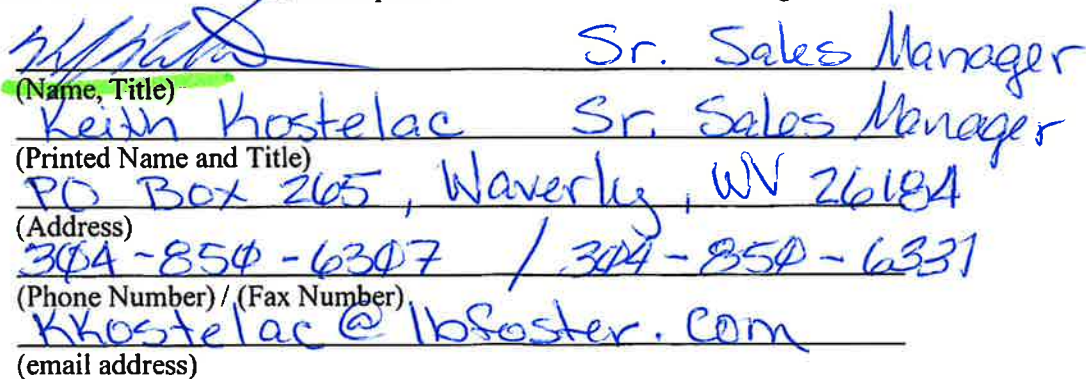 Sr. Sales Manager
(Name, Title)
Keith Kostelac Sr. Sales Manager
(Printed Name and Title)
PO Box 265, Waverly, WV 26184
(Address)
304-850-6307 / 304-850-6331
(Phone Number) / (Fax Number)
KKostelac@lbfoster.com
(email address)